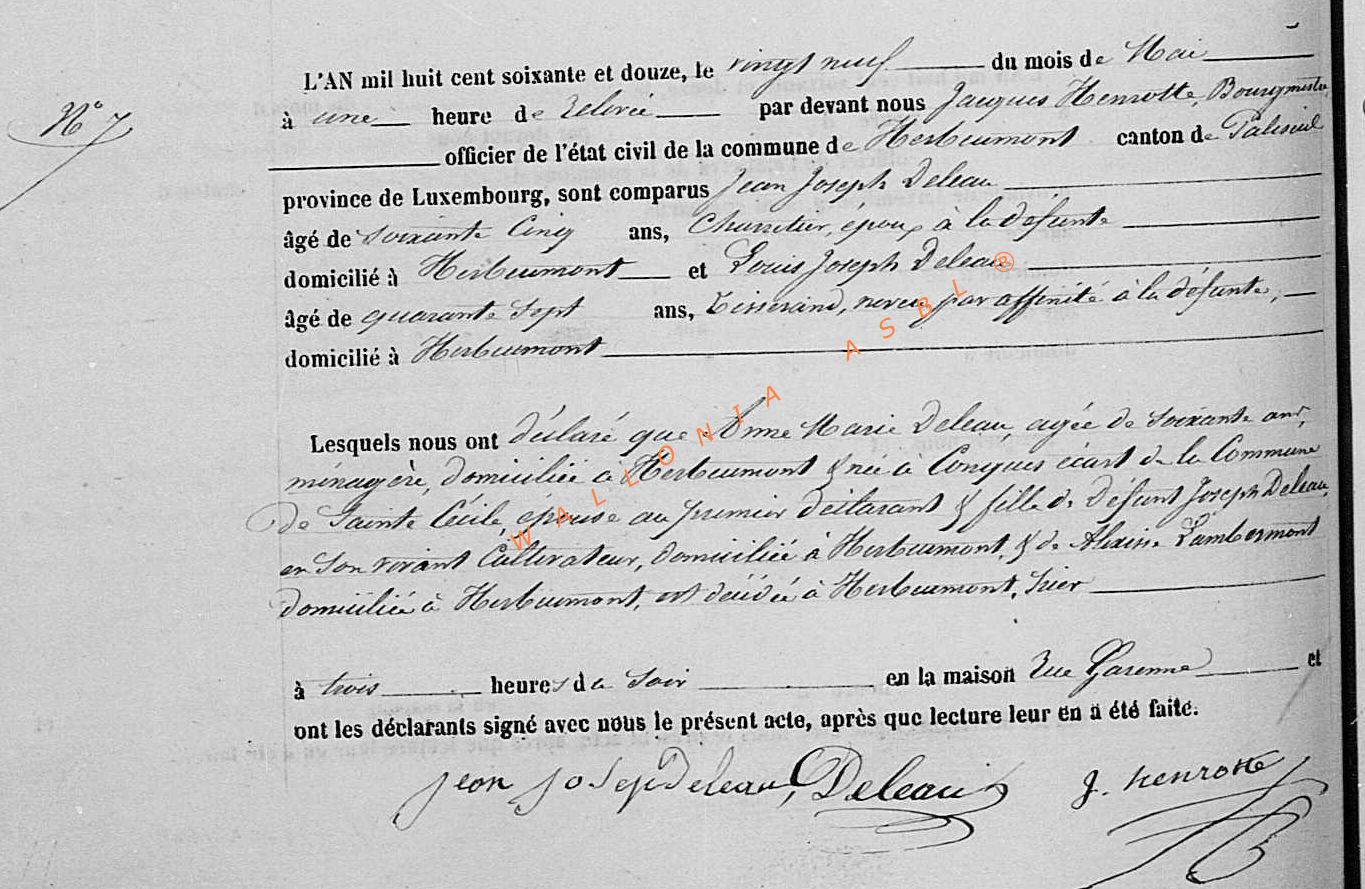 L'AN mil huit cent soixante et douze, le vingt neuf du mois de Mai
N° 7
à une heure de relevée par devant nous Jacques Henrotte, Bourgmestre,
officier de l'état civil de la commune de Herbeumont canton de Paliseul
province de Luxembourg, sont comparus Jean Joseph Deleau
âgé de soixante Cinq ans, Charretier, époux à la défunte
domicilié à Herbeumont et Louis Joseph Deleau
âgé de quarante Sept ans, Tisserand, neveu par affinité à la défunte,
domicilié à Herbeumont
Lesquels nous ont déclaré que Anne Marie Deleau agée de Soixante ans,
ménagère, domiciliée à Herbeumont & née à Conques écart de la Commune
de Sainte Cécile, épouse au premier déclarant & fille de défunt Joseph Deleau,
en Son vivant Cultivateur, domiciliée à Herbeumont, & de Lambermont
domiciliée à Herbeumont, est décédée à Herbeumont, hier
à trois heures du Soir en la maison Rue Garenne et
ont les déclarants signé avec nous le présent acte, après que lecture leur en a été faite.
jean joseph Deleau, Deleau J. henrotte
WALLONIA ASBL ®